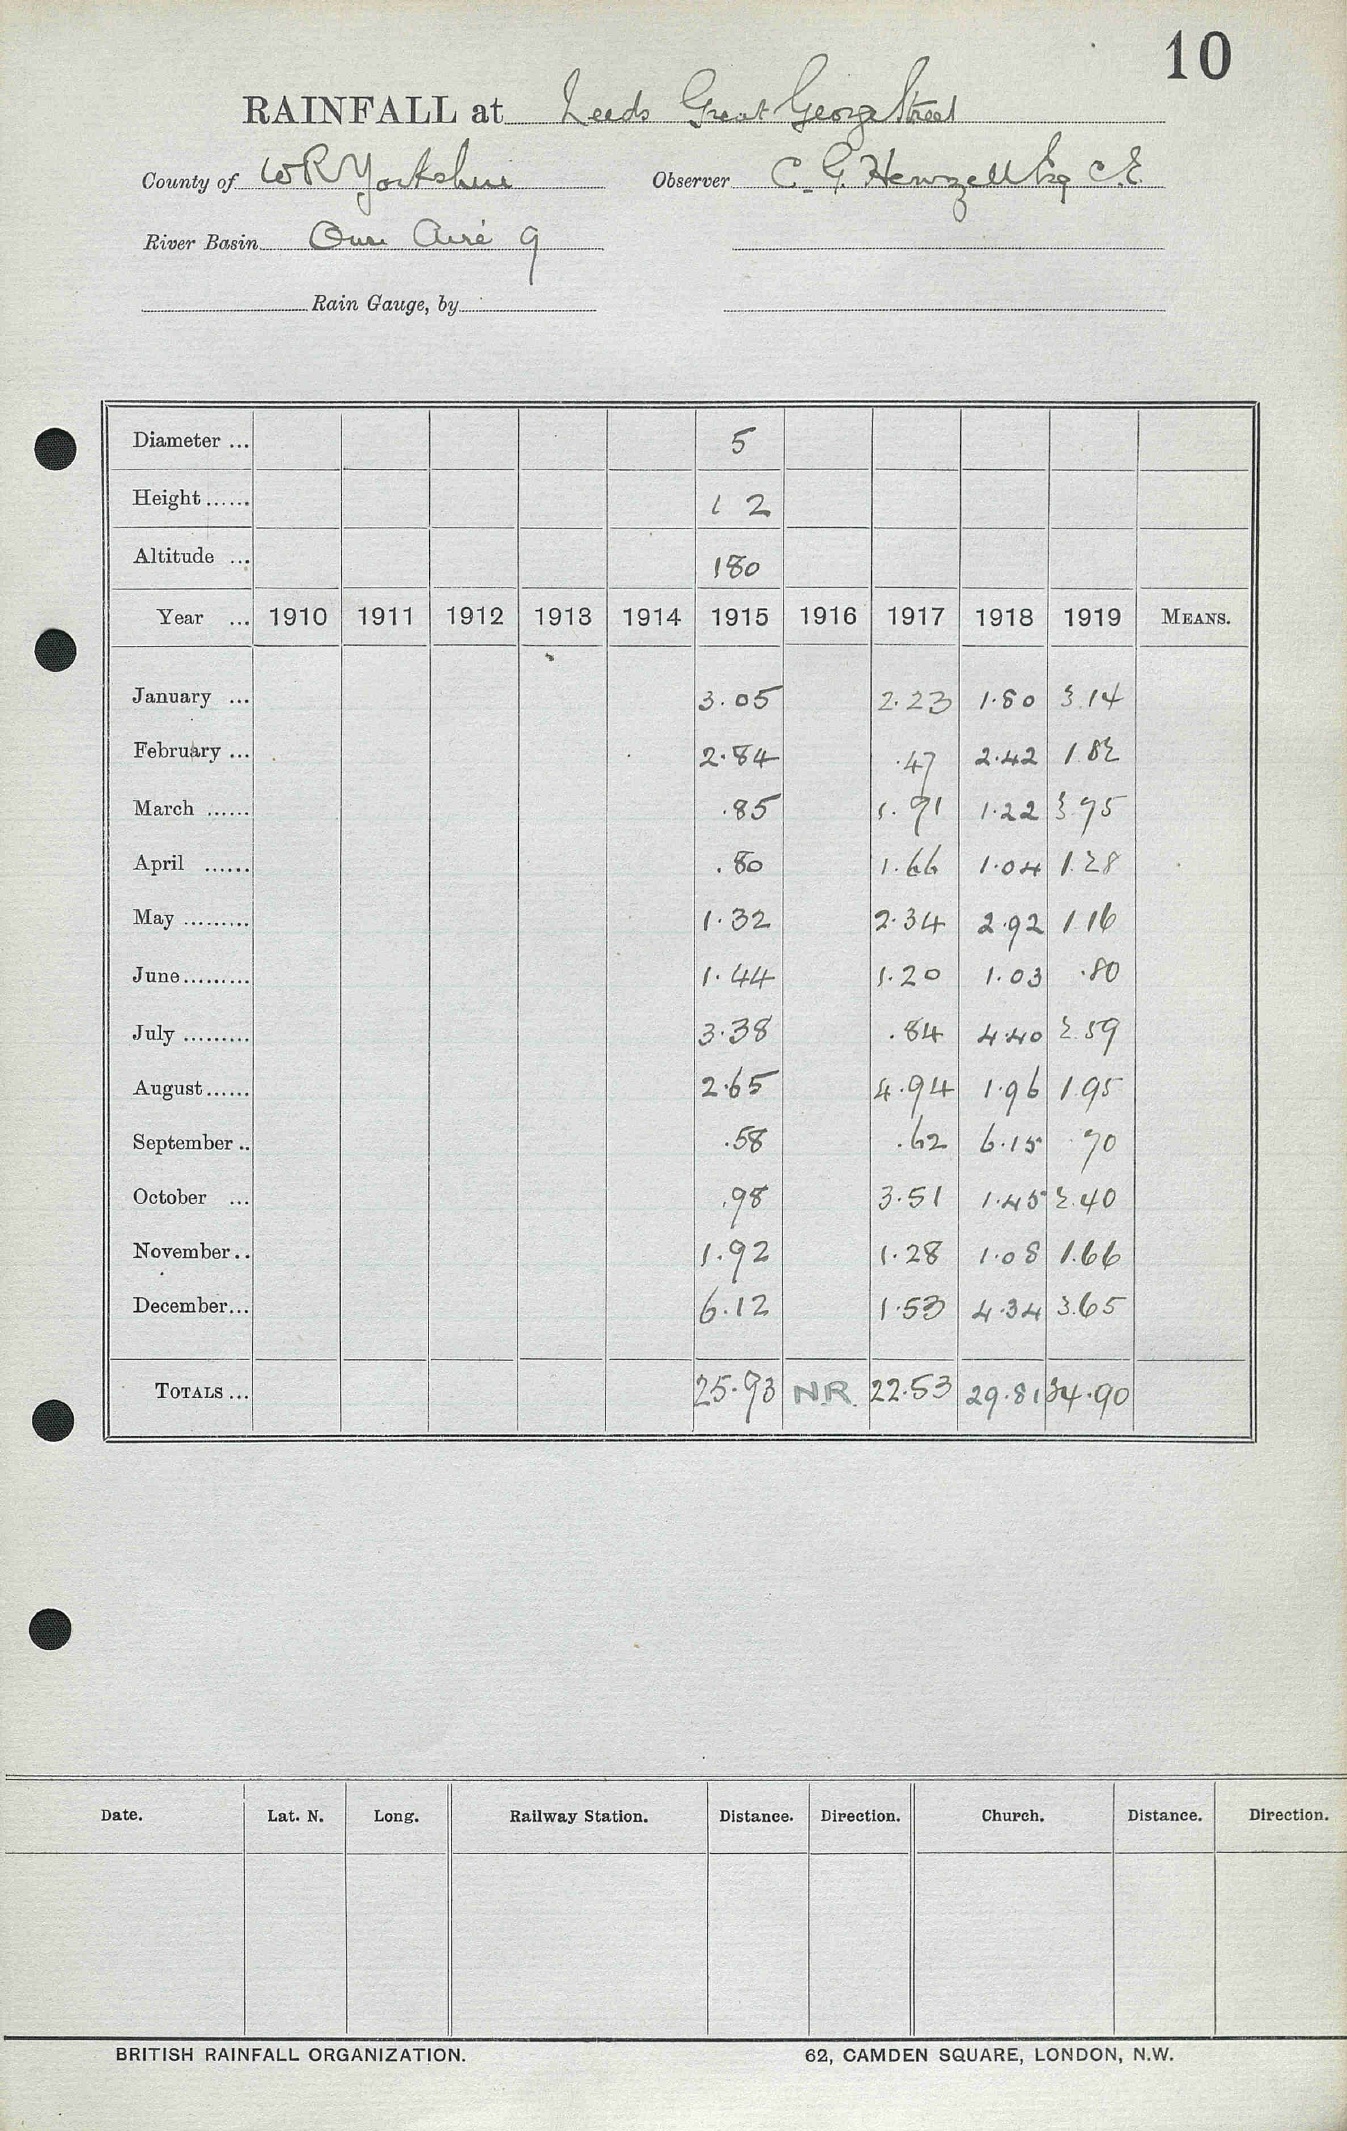 10
RAINFALL at Leeds Great George Street
County of WR Yorkshire Observer C. G. Henzell Esq C.E.
River Basin Ouse Aire 9
Rain Gauge, by
Diameter ... 5
Height ...... 1 2
Altitude ... 180
Year ... 1910 1911 1912 1913 1914 1915 1916 1917 1918 1919 MEANS.
January ... 3.05 2.23 1.80 3.14
February ... 2.84 .47 2.42 1.82
March ...... .85 1.91 1.22 3.75
April ...... .80 1.66 1.04 1.28
May ......... 1.32 2.34 2.92 1.16
June ......... 1.44 1.20 1.03 .80
July ......... 3.38 .84 4.40 2.59
August ...... 2.65 4.94 1.96 1.95
September .. .58 .62 6.15 .70
October ... .98 3.51 1.45 2.40
November .. 1.92 1.28 1.08 1.66
December ... 6.12 1.53 4.34 3.65
TOTALS ... 25.93 N.R. 22.53 29.81 24.90
Date. Lat. N. Long. Railway Station. Distance. Direction. Church. Distance. Direction.
BRITISH RAINFALL ORGANIZATION. 62, CAMDEN SQUARE, LONDON, N.W.